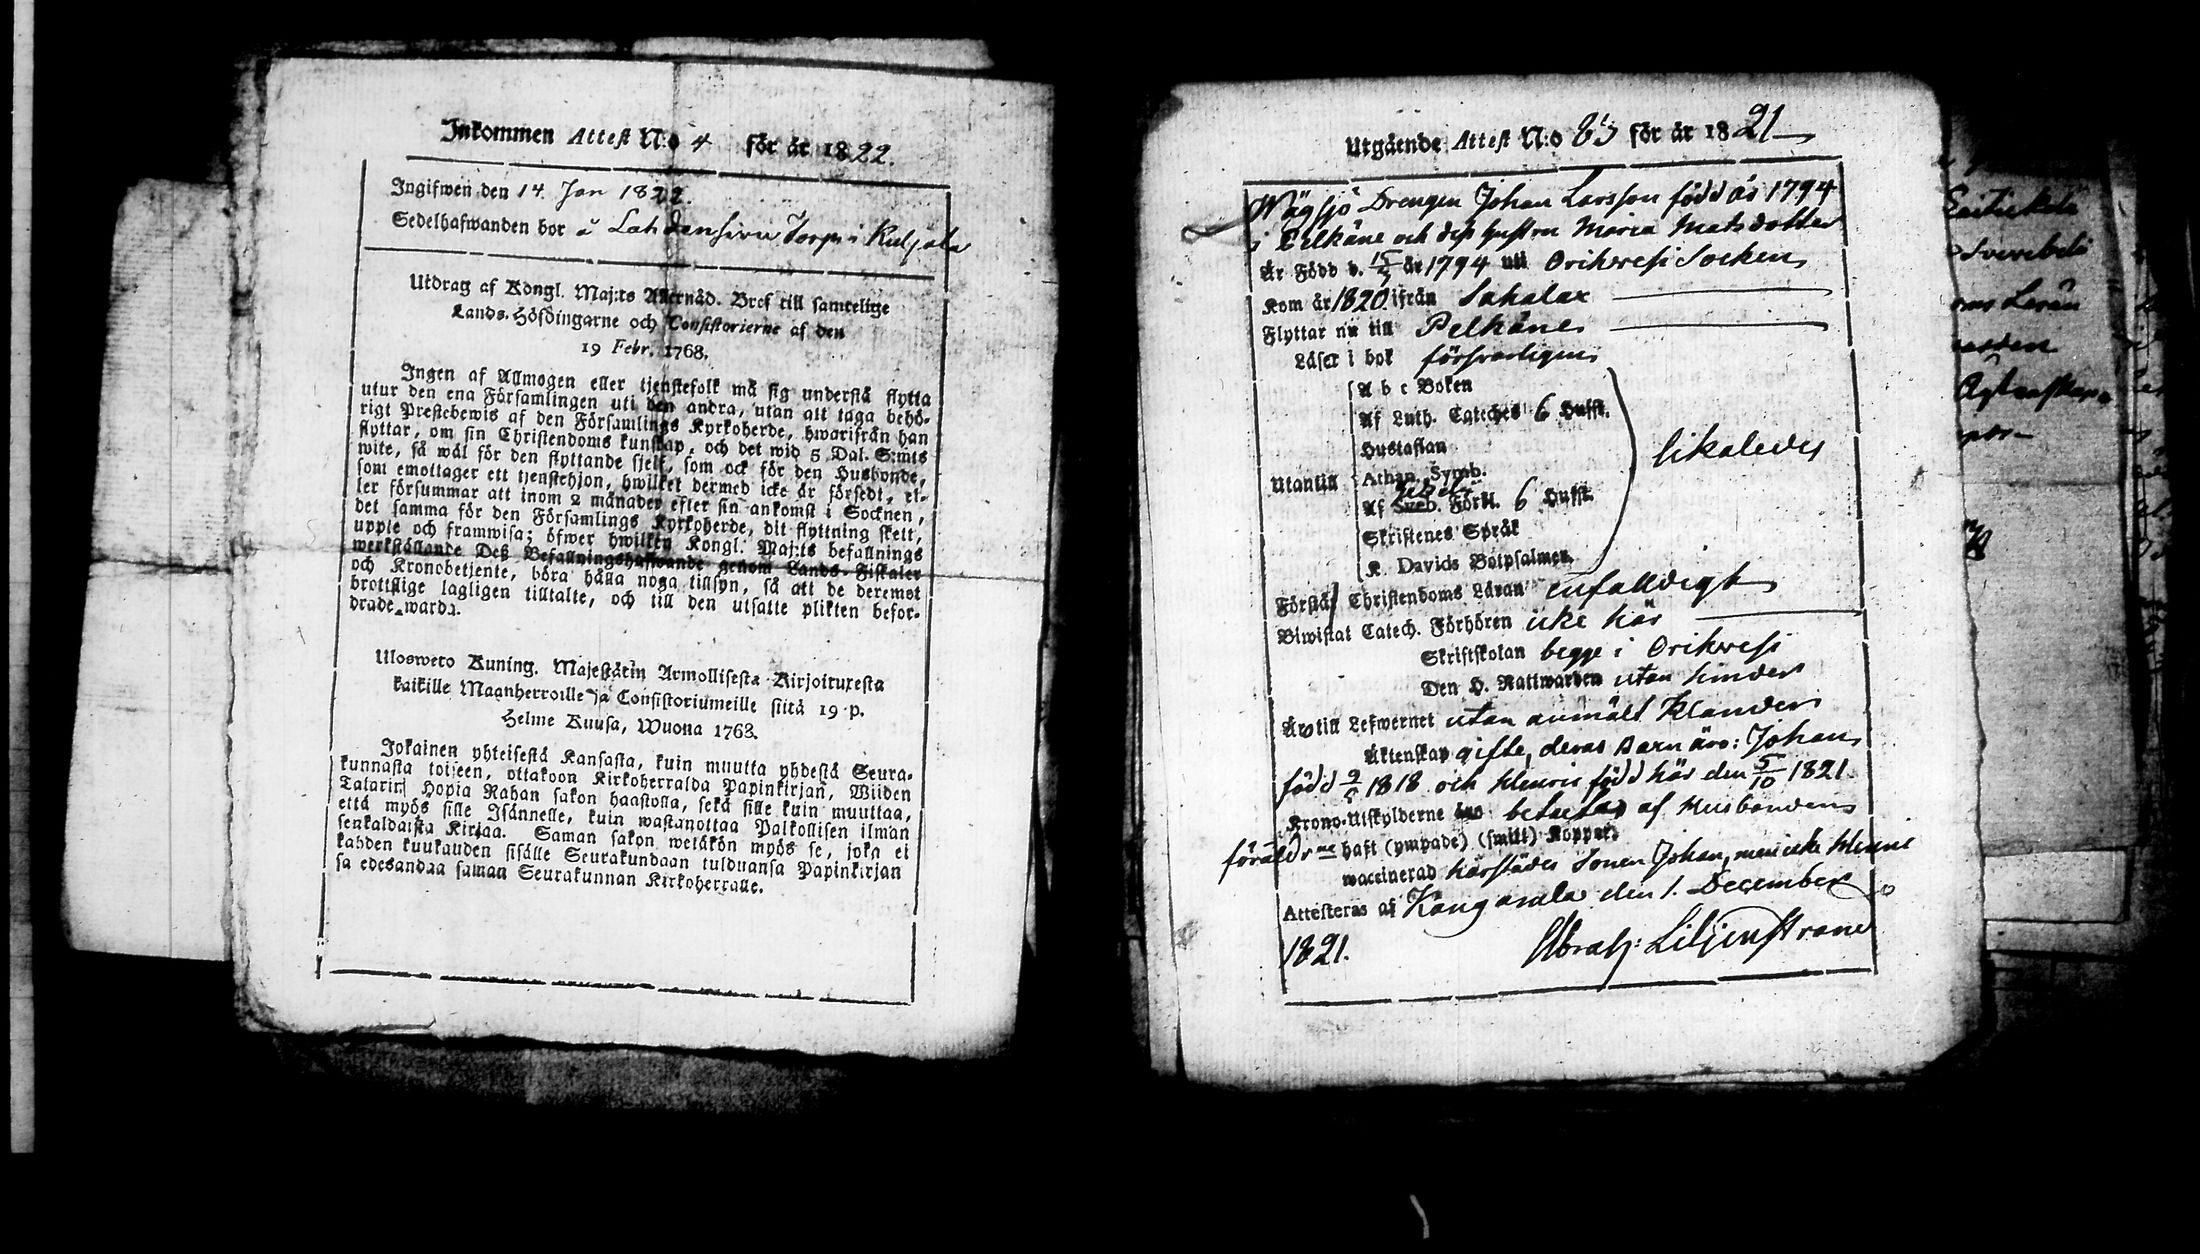 Inkommen Attest N:o 4 för år 1822.
Ingifwen den 14 Jan 1822.
Sedelhafwanden bor å Lahdensivu Torp i Kuljala
Utdrag af Kongl. Maj:ts Allernåd. Bref till samtelige
Lands-Höfdingarne och Consistorierne af den
19 Febr. 1768.
Ingen af Allmogen eller tjenstefolk må sig understå flytta
utur den ena Församlingen uti den andra, utan att taga behö-
rigt Prestebewis af den Församlings Kyrkoherde, hwarifrån han
flyttar, om sin Christendoms kunskap, och det wid 5 Dal. S:mts
wite, så wäl för den flyttande sjelf, som ock för den Husbonde,
som emottager ett tjenstehjon, hwilket dermed icke är försedt, el-
ler försummar att inom 2 månader efter sin ankomst i Socknen,
det samma för den Församlings Kyrkoherde, dit flyttning skett,
uppte och framwisa; öfwer hwilken Kongl. Maj:ts befallnings
werkställande Deß Befallningshafwande genom Lands-Fiskaler
och Kronobetjente, böra hålla noga tillsyn, så att de deremot
brottslige lagligen tilltalte, och till den utsatte plikten befor-
drade warda.
Uloswetö Kuning. Majestätin Armollisesta Kirjoituxesta
kaikille Maanherroille ja Consistoriumeille siitä 19 p.
Helme Kuusa, Wuona 1768.
Jokainen yhteisestä Kansasta, kuin muutta yhdestä Seura-
kunnasta toiseen, ottakoon Kirkoherralda Papinkirjan, Wiiden
Talarin Hopia Rahan sakon haastolla, sekä sille kuin muuttaa,
että myös sille Isännelle, kuin wastanottaa Palkollisen ilman
senkaldaista Kirjaa. Saman sakon wetäkön myös se, joka ei
kahden kuukauden sisälle Seurakundaan tulduansa Papinkirjan
sa edesandaa saman Seurakunnan Kirkoherralle.
Utgående Attest N:o 83 för år 1821
Wägsjö Drengen Johan Larsson född år 1794
i Pelkäne och dess hustru Maria Matsdotter
Är Född d. 15/3 år 1794 uti Orihvesi Socken,
Kom år 1820 ifrån Sahalax
Flyttar nu till Pelkäne
Läser i bok försvarligen
A b c Boken
Af Luth. Cateches 6 Hufst.
Hustaflan
Utantill Athan. Symb.
Af Sveb. Förkl. 6 Hufst.
Skriftenes Språk
K. Davids Botpsalmer.
likaledes
Förstår Christendoms Läran enfalldigt
Biwistat Catech. Förhören icke här
Skriftskolan begge i Orihvesi
Den H. Nattwarden utan hinder
Är till Lefwernet utan anmält klander
Äktenskap gifte, deras Barn äro: Johan,
född 2/5 1818 och Henric född här den 5/10 1821.
Krono-Utskylderne äro betalas af Husbonden
föräldrne haft (ympade) (smitt) Koppor
waccinerad härstädes Sonen Johan, men icke Henric
Attesteras af Kangasala den 1. December
1821. Abrah: Liljenstrand